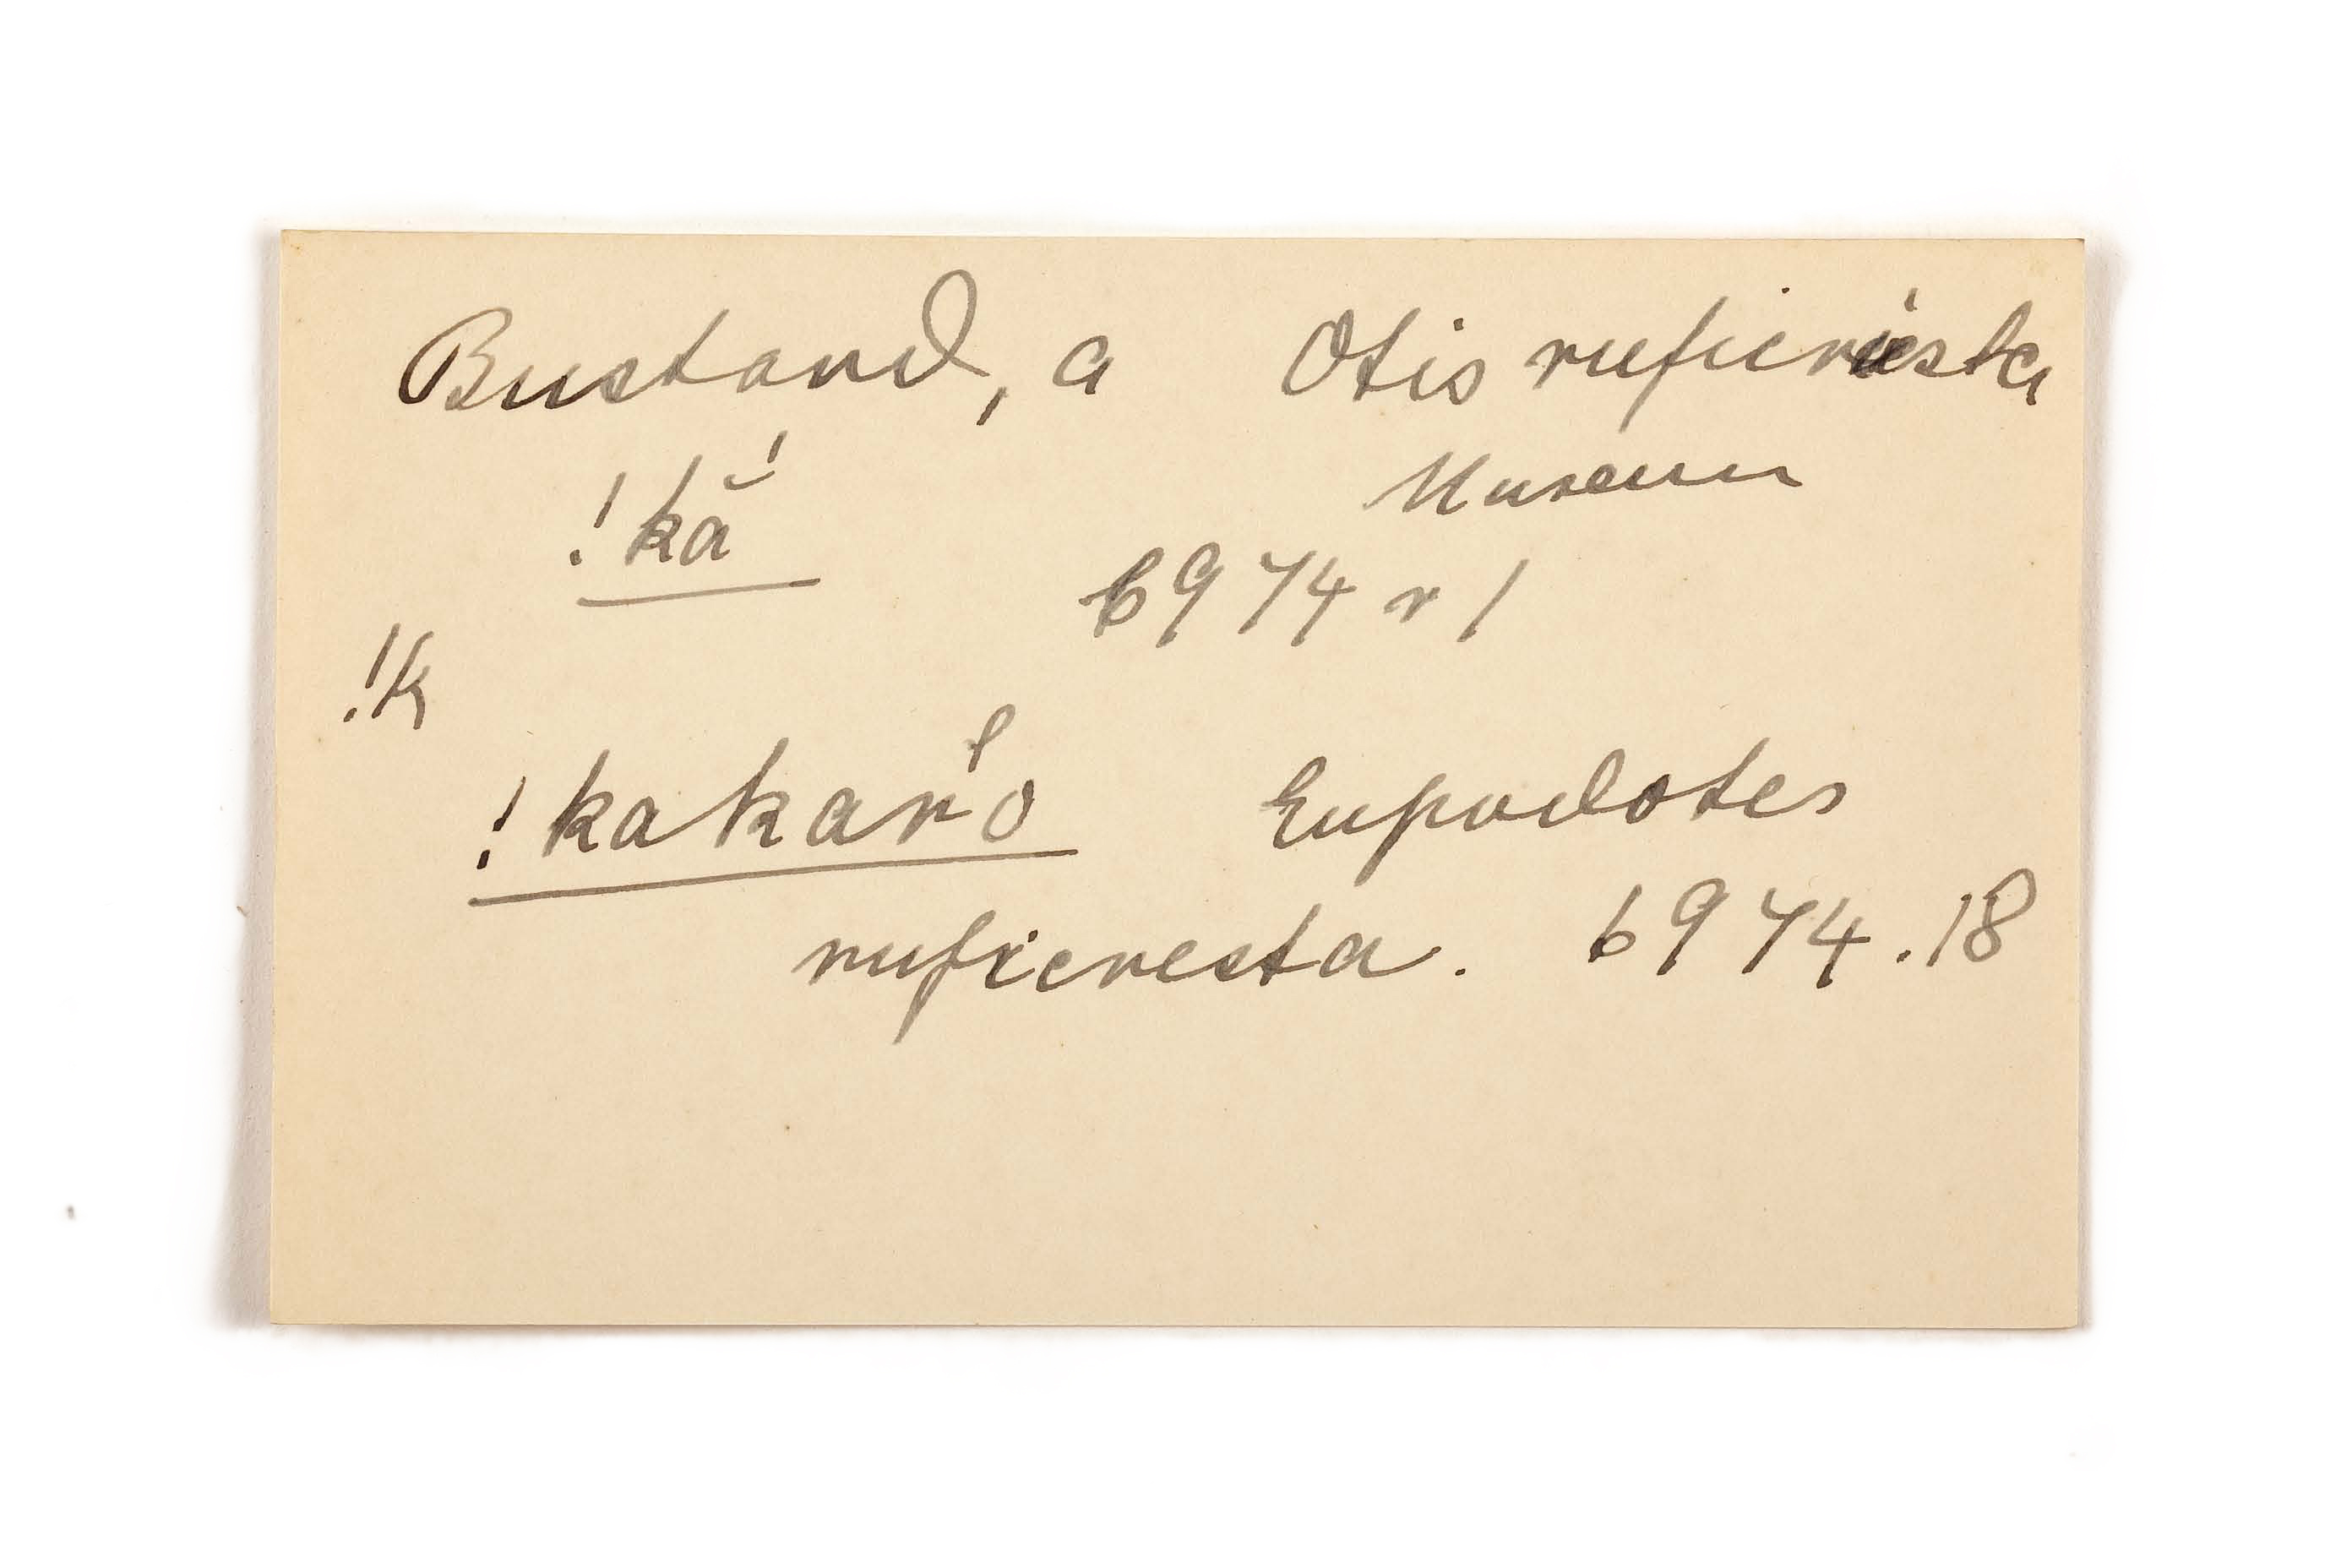 Bustard, a Otis ruficrista
!kắ Museum
6974 r 1
!k
!kakarro Eupodotes
ruficresta. 6974.18